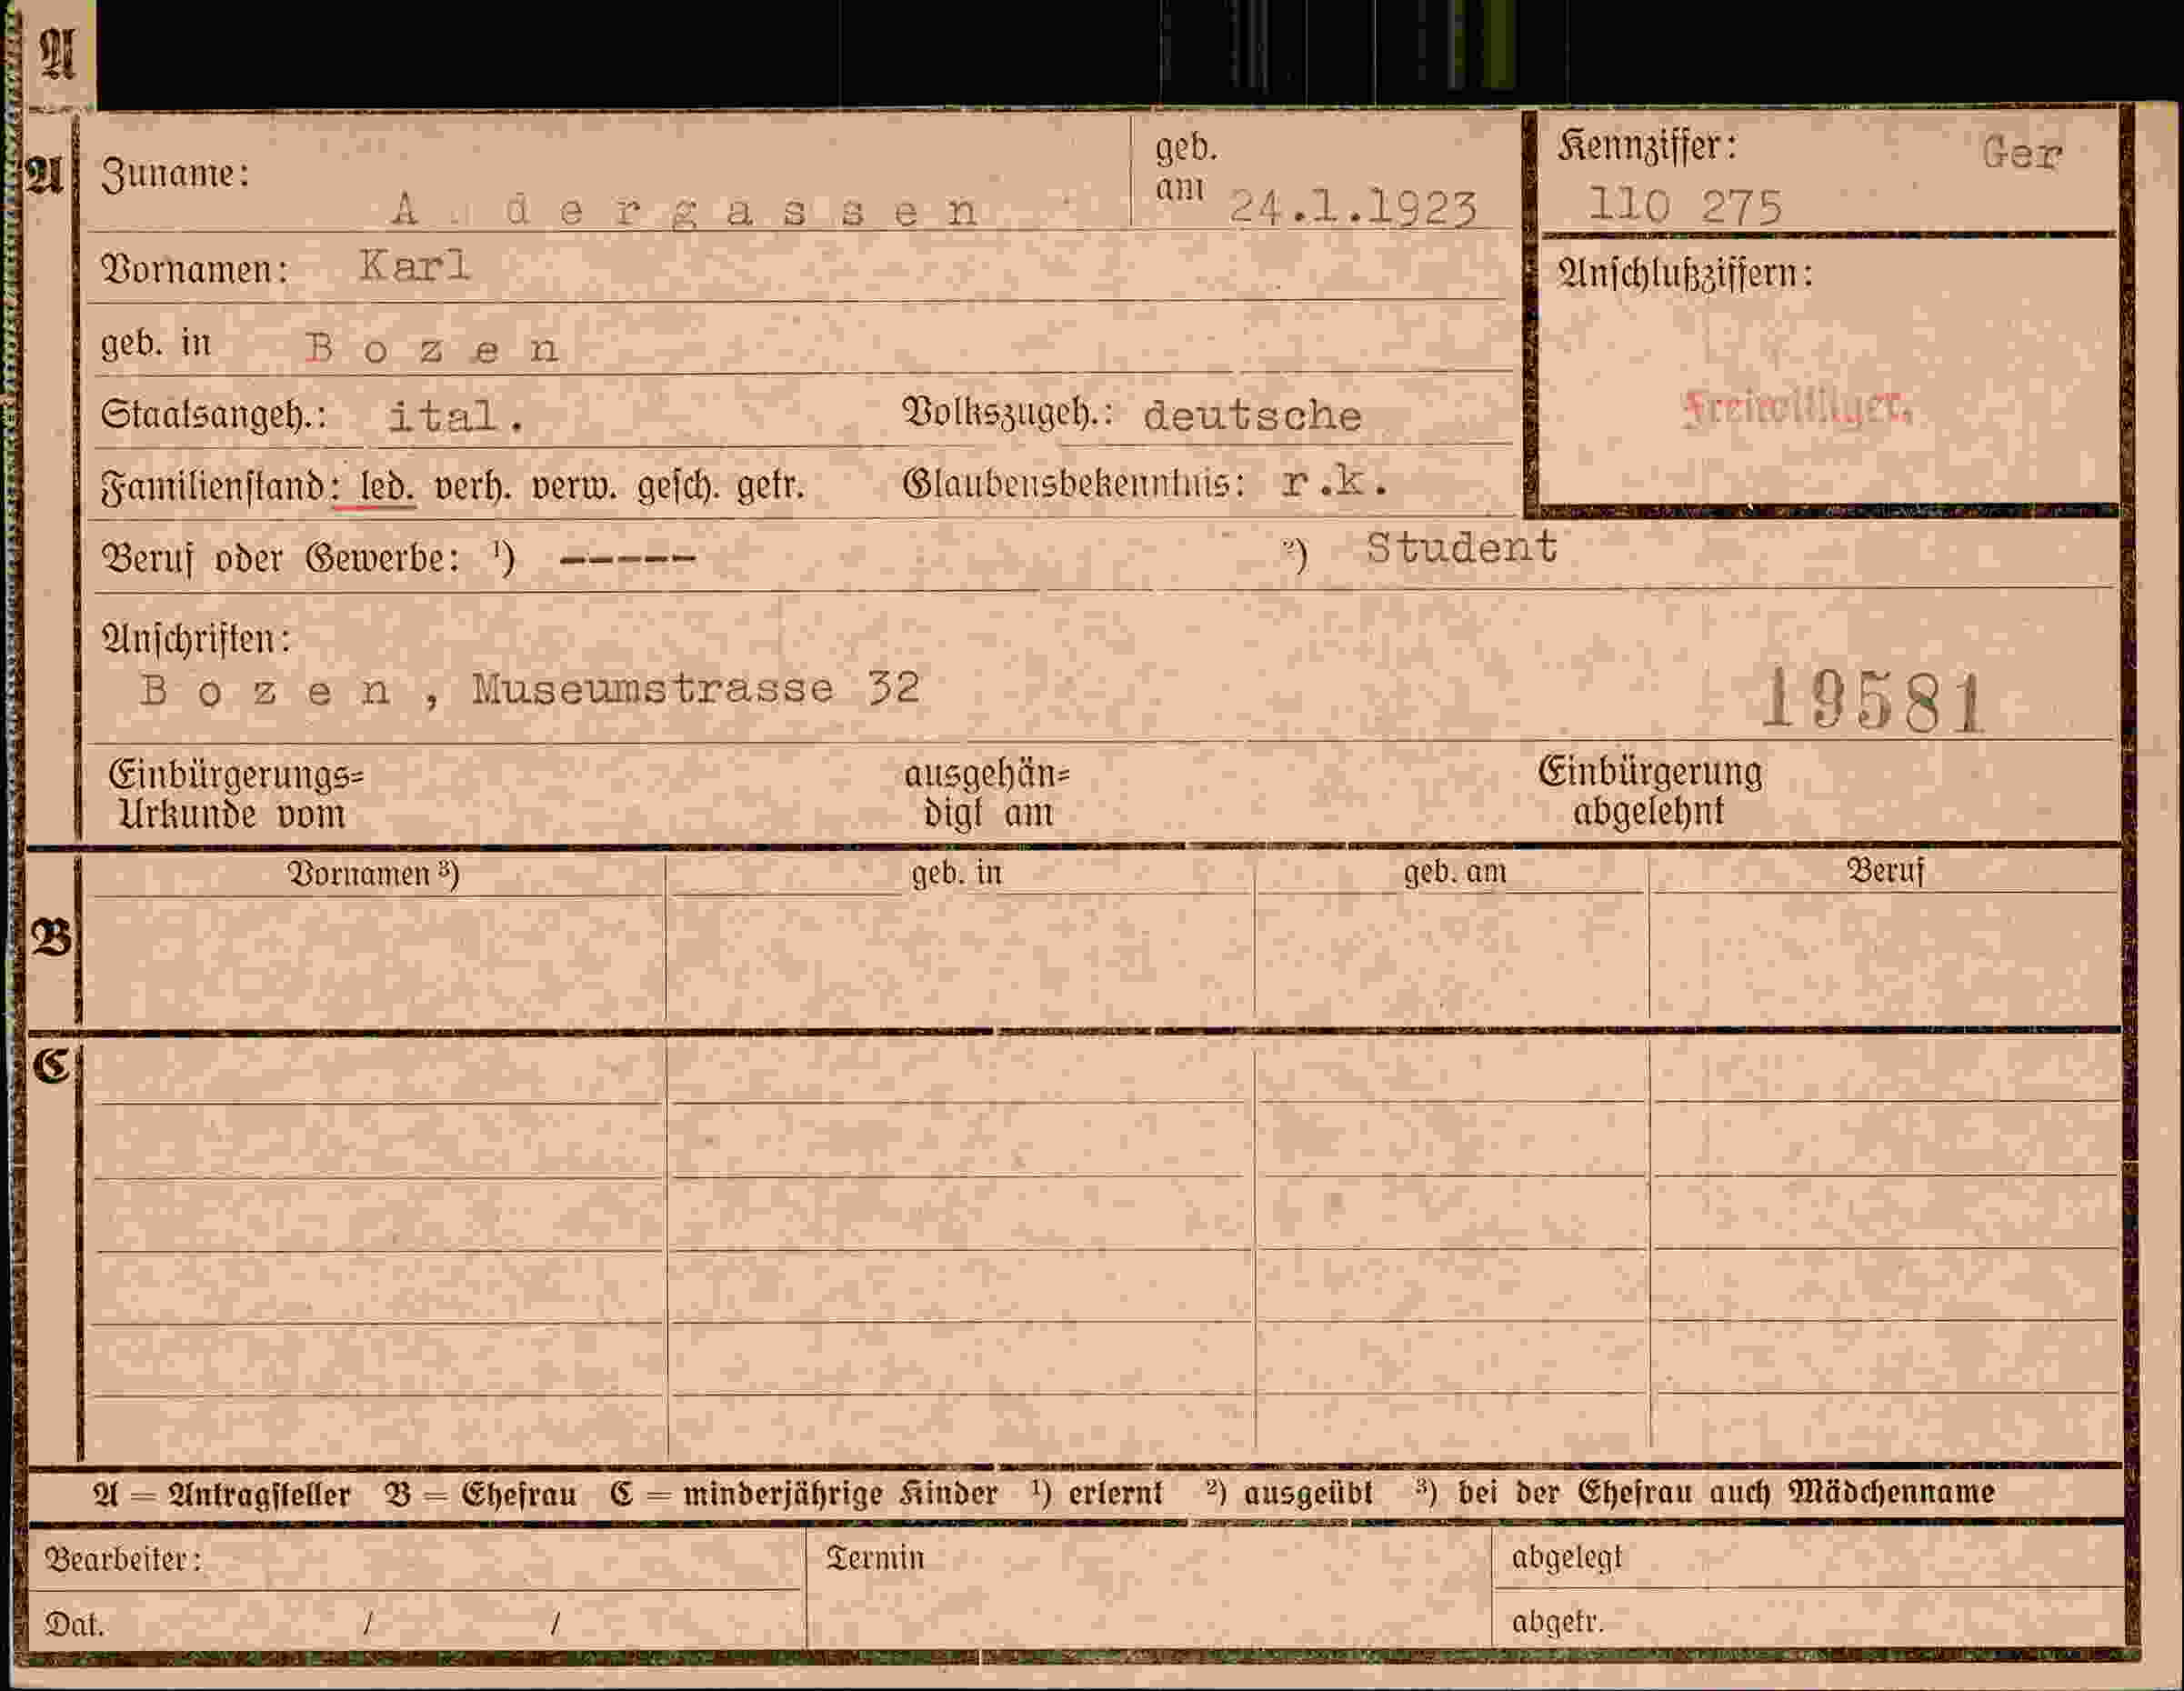 A
A
Zuname: A  d e r g a s s e n
geb. am 24.1.1923
Kennziffer: Ger
110 275
Vornamen: Karl
Anschlußziffern:
geb. in B o z e n
Freiwilliger.
Staatsangeh.: ital. Volkszugeh.: deutsche
Familienstand: led. verh. verw. gesch. getr. Glaubensbekenntnis: r.k.
Beruf oder Gewerbe: ¹) ----- ²) Student
Anschriften:
B o z e n , Museumstrasse 32
19581
Einbürgerungs=
Urkunde vom
ausgehän=
digt am
Einbürgerung
abgelehnt
Vornamen ³) geb. in geb. am Beruf
B
C
A = Antragsteller B = Ehefrau C = minderjährige Kinder ¹) erlernt ²) ausgeübt ³) bei der Ehefrau auch Mädchenname
Bearbeiter: Termin abgelegt
Dat. / / abgetr.